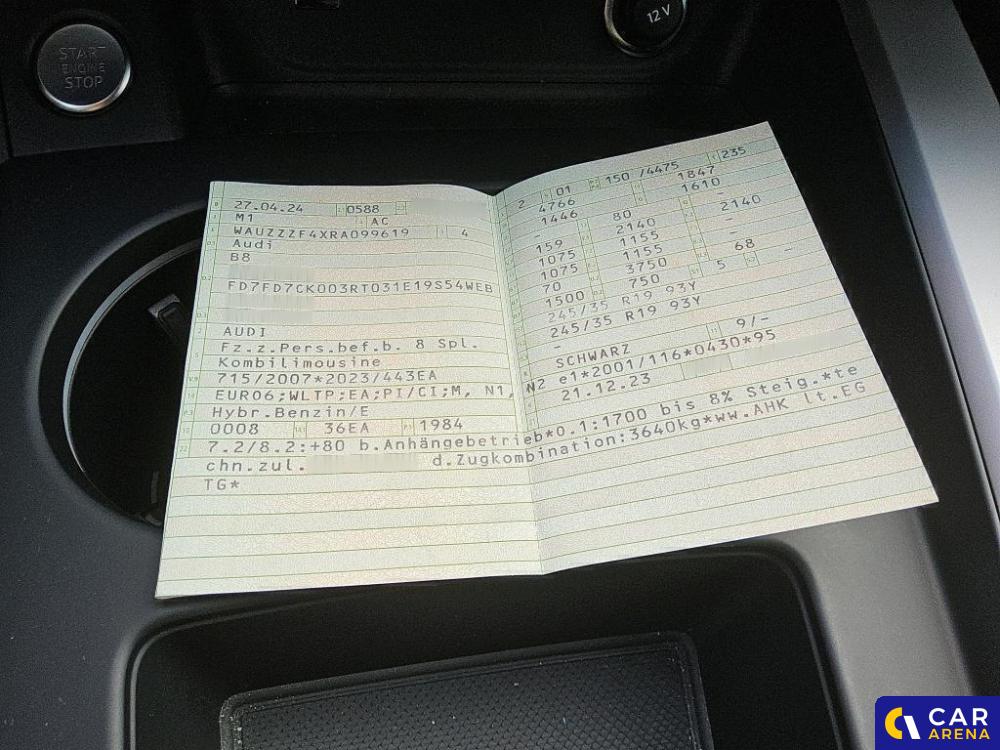 START
ENGINE
STOP
12 V
27.04.24 0588
M1 AC
WAUZZZF4XRA099619 4
Audi
B8
FD7FD7CK003RT031E19S54WEB
AUDI
Fz.z.Pers.bef.b. 8 Spl.
Kombilimousine
715/2007*2023/443EA
EURO6;WLTP;EA;PI/CI;M, N1, N2
Hybr.Benzin/E
0008 36EA 1984
7.2/8.2:+80 b.Anhängebetrieb*0.1:1700 bis 8% Steig.*te
chn.zul. d.Zugkombination:3640kg*ww.AHK lt.EG
TG*
2 01 150 /4475 235
4766 1847
1446 1610
- 80 -
159 2140 2140
1075 1155 -
1075 1155
70 3750 68
1500 750 5 -
245/35 R19 93Y
245/35 R19 93Y
-
SCHWARZ 9/-
e1*2001/116*0430*95
21.12.23
CAR
ARENA